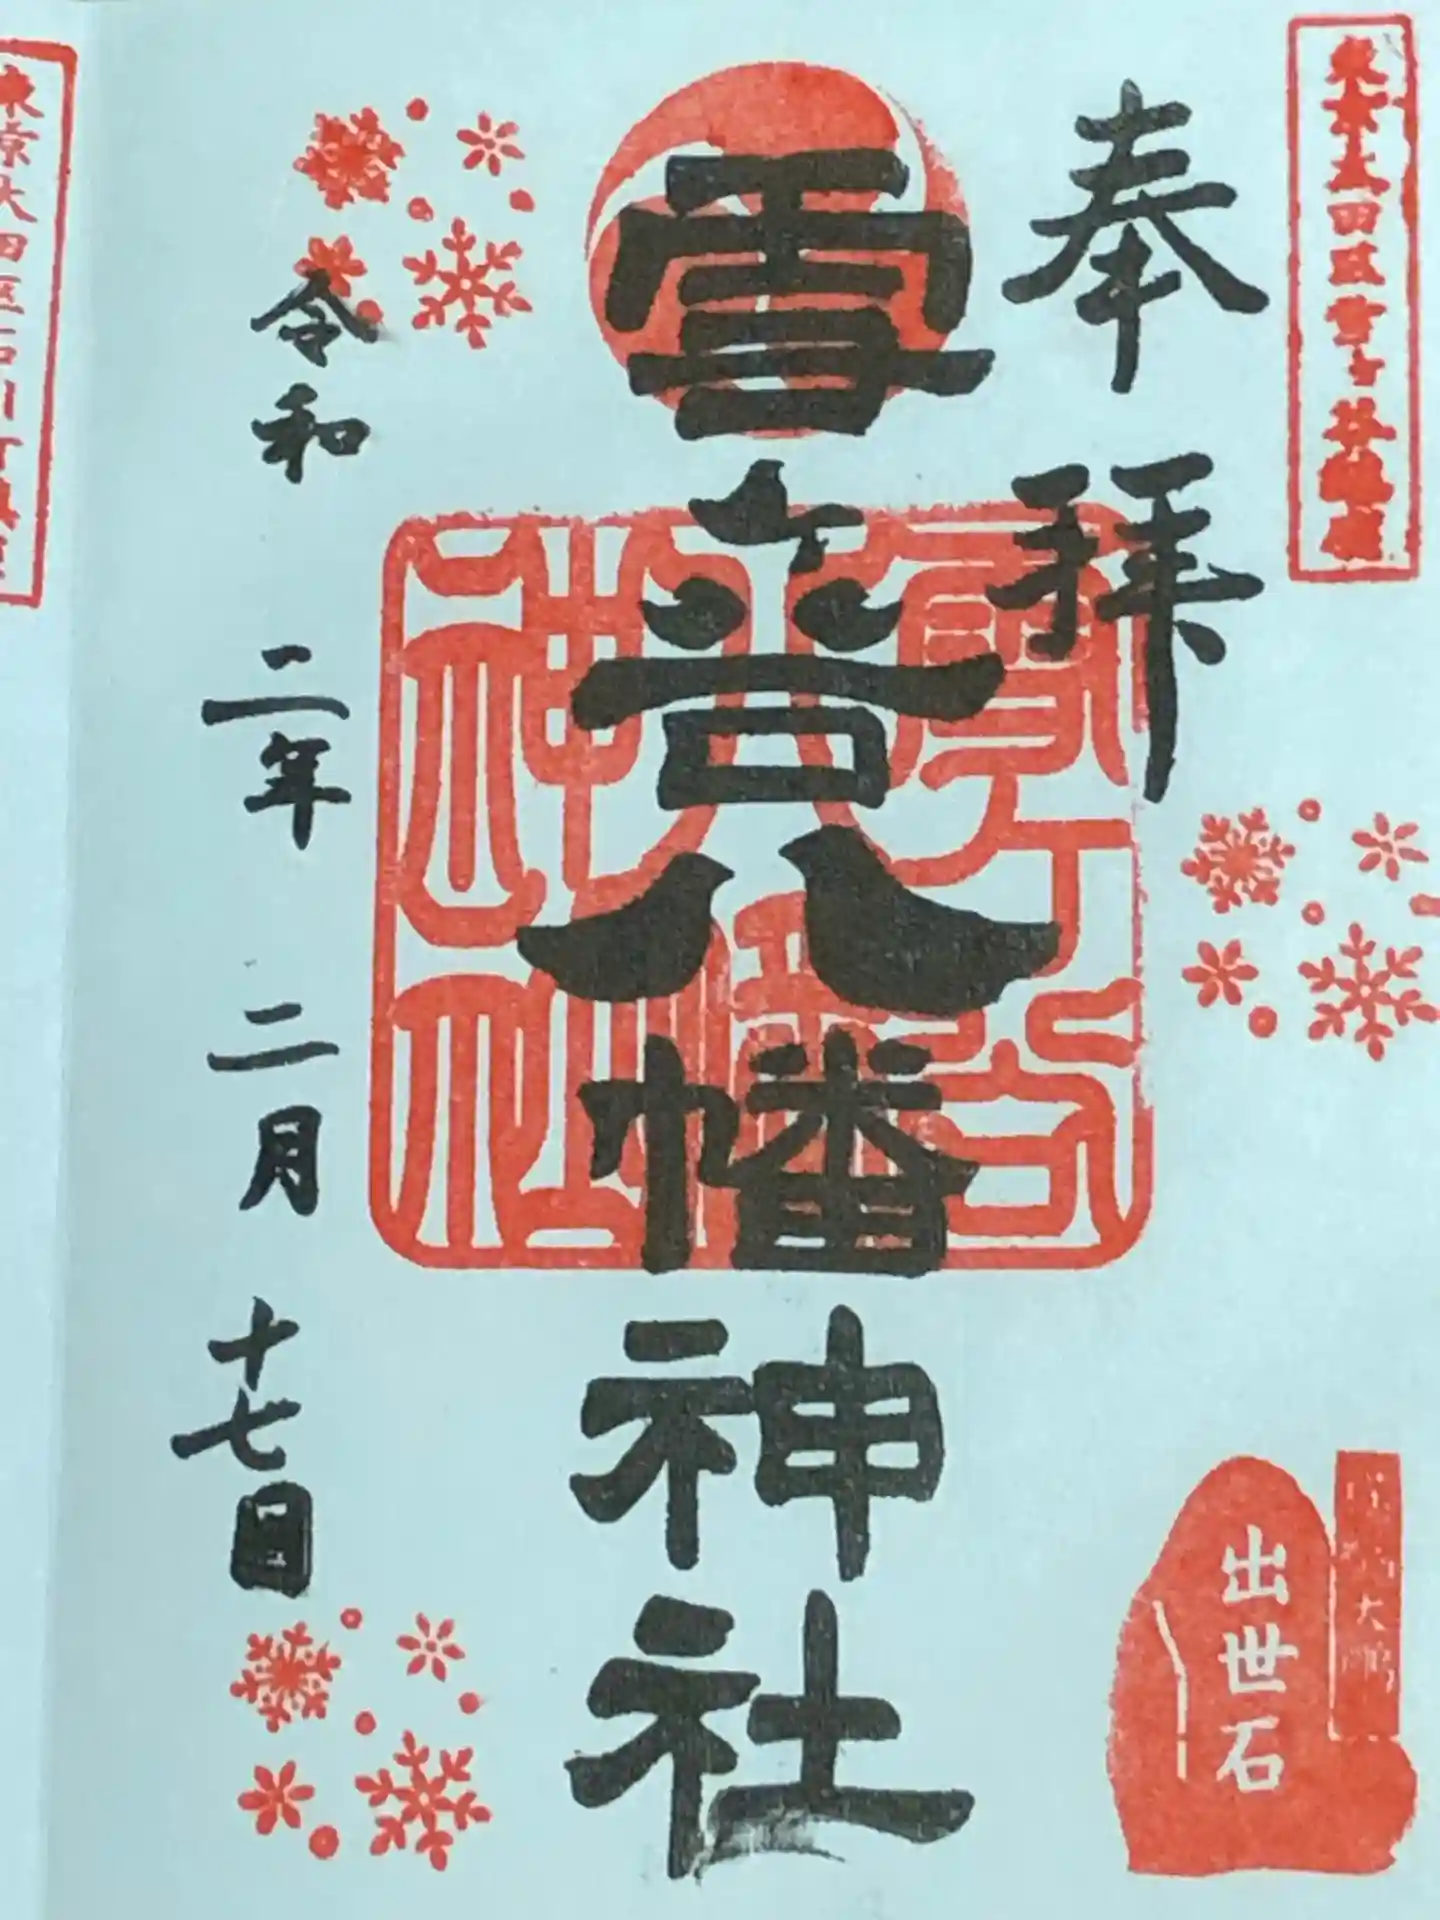 東京大田区雪ヶ谷鎮座
奉拝
雪ヶ谷八幡神社
雪ヶ谷八幡神社
令和二年二月十七日
出世石
大鵬
東京大田区石川町鎮座